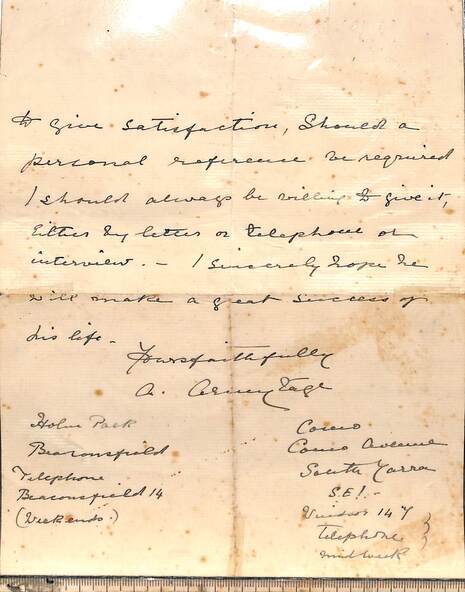 to give satisfaction, Should a
personal reference be required
I should always be willing to give it,
either by letter or telephone or
interview. - I sincerely hope he
will make a great success of
his life -
Yours faithfully
A. Armytage
Holm Park
Beaconsfield
Telephone
Beaconsfield 14
(Weekends.)
Como
Como Avenue
South Yarra
S.E.1. -
Windsor 147
telephone
mid week